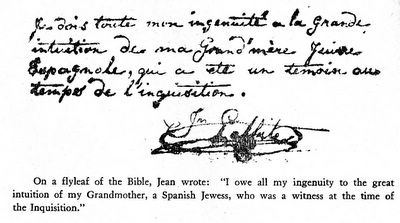 Je dois toute mon ingenuité a la grande
intuition de ma Grand'mère Juive
Espagnole, qui a été un temoin au
temps de l'inquisition.
Jn Laffite
On a flyleaf of the Bible, Jean wrote: "I owe all my ingenuity to the great
intuition of my Grandmother, a Spanish Jewess, who was a witness at the time of
the Inquisition."